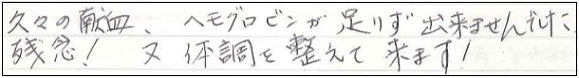 久々の献血、ヘモグロビンが足りず出来ませんでした
残念！ 又 体調を整えて来ます！